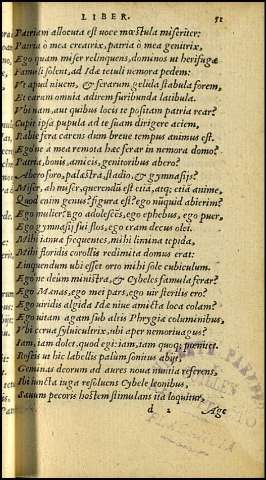 LIBER. 51
Patriam allocuta est uoce mœstula miseriter:
Patria ò mea creatrix, patria ò mea genitrix,
Ego quam miser relinquens, dominos ut herifugæ
Famuli solent, ad Idæ tetuli nemora pedem:
Vt apud niuem, & ferarum gelida stabula forem,
Et earum omnia adirem furibunda latibula.
Vbi nam, aut quibus locis te positam patria rear?
Cupit ipsa pupula ad te suam dirigere aciem,
Rabie fera carens dum breue tempus animus est.
Ego ne a mea remota hæc ferar in nemora domo?
Patria, bonis, amicis, genitoribus abero?
Abero foro, palæstra, stadio, & gymnasijs?
Miser, ah miser, querendũ est etiã, atq; etiã anime,
Quod enim genus? figura? est? ego nũquid abierim?
Ego mulier? Ego adolescẽs, ego ephebus, ego puer,
Ego gymnasij fui flos, ego eram decus olei.
Mihi ianuæ frequentes, mihi limina tepida,
Mihi floridis corollis redimita domus erat:
Linquendum ubi esset orto mihi sole cubiculum.
Ego ne deũm ministra, & Cybeles famula ferar?
Ego Mænas, ego mei pars, ego uir sterilis ero?
Ego uiridis algida Idæ niue amicta loca colam?
Ego uitam agam sub altis Phrygiæ columinibus,
Vbi cerua syluicultrix, ubi aper nemoriuagus?
Iam, iam dolet, quod egi: iam, iam quoq; pœnitet.
Roseis ut hic labellis palùm sonitus abijt,
Geminas deorum ad aures noua nuntia referens,
Ibi iuncta iuga resoluens Cybele leonibus,
Læuum pecoris hostem stimulans ita loquitur,
d 2 Age